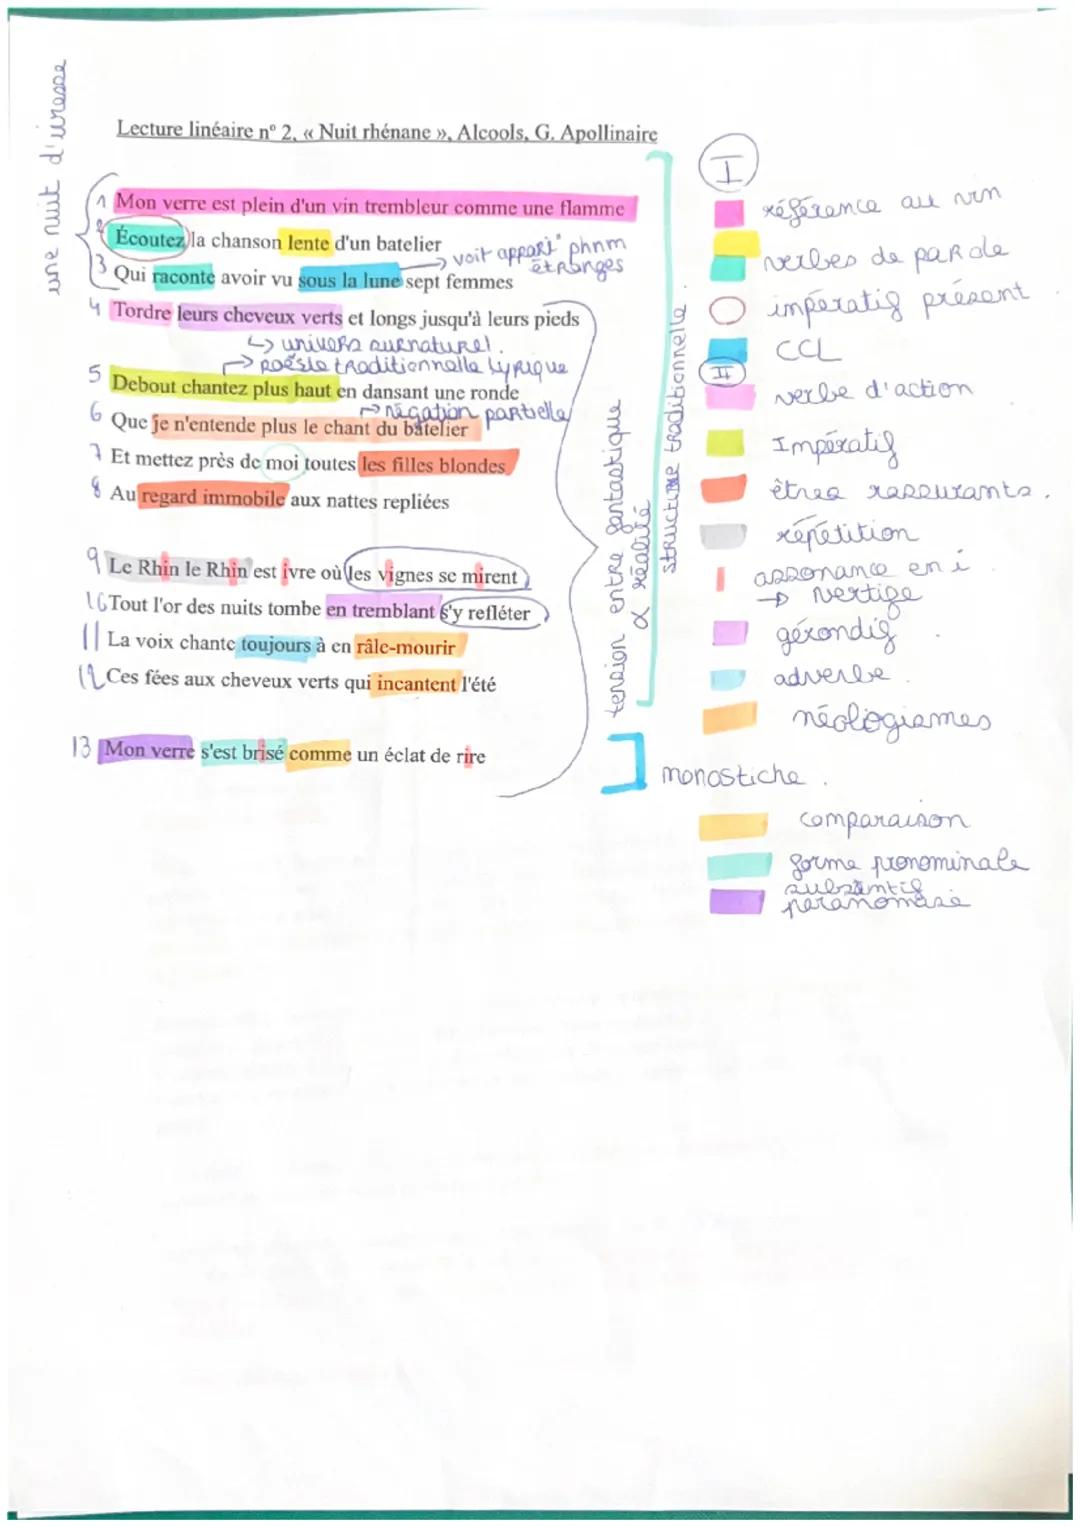 une nuit d'ivresse
Lecture linéaire n° 2, « Nuit rhénane », Alcools, G. Apollinaire
1 Mon verre est plein d'un vin trembleur comme une flamme
2 Écoutez la chanson lente d'un batelier
→ voit appari° phnm étranges
3 Qui raconte avoir vu sous la lune sept femmes
4 Tordre leurs cheveux verts et longs jusqu'à leurs pieds
↳ univers surnaturel.
→ poésie traditionnelle lyrique
5 Debout chantez plus haut en dansant une ronde
→ négation partielle
6 Que je n'entende plus le chant du batelier
7 Et mettez près de moi toutes les filles blondes
8 Au regard immobile aux nattes repliées
9 Le Rhin le Rhin est ivre où les vignes se mirent
10 Tout l'or des nuits tombe en tremblant s'y refléter
11 La voix chante toujours à en râle-mourir
12 Ces fées aux cheveux verts qui incantent l'été
13 Mon verre s'est brisé comme un éclat de rire
tension entre fantastique
& réalité
structure traditionnelle.
monostiche.
I
référence au vin
verbes de parole
impératif présent
CCL
II
verbe d'action
Impératif
êtres rassurants.
répétition
assonance en i
→ vertige
gérondif
adverbe.
néologismes
comparaison
forme pronominale
substantif
paranomase